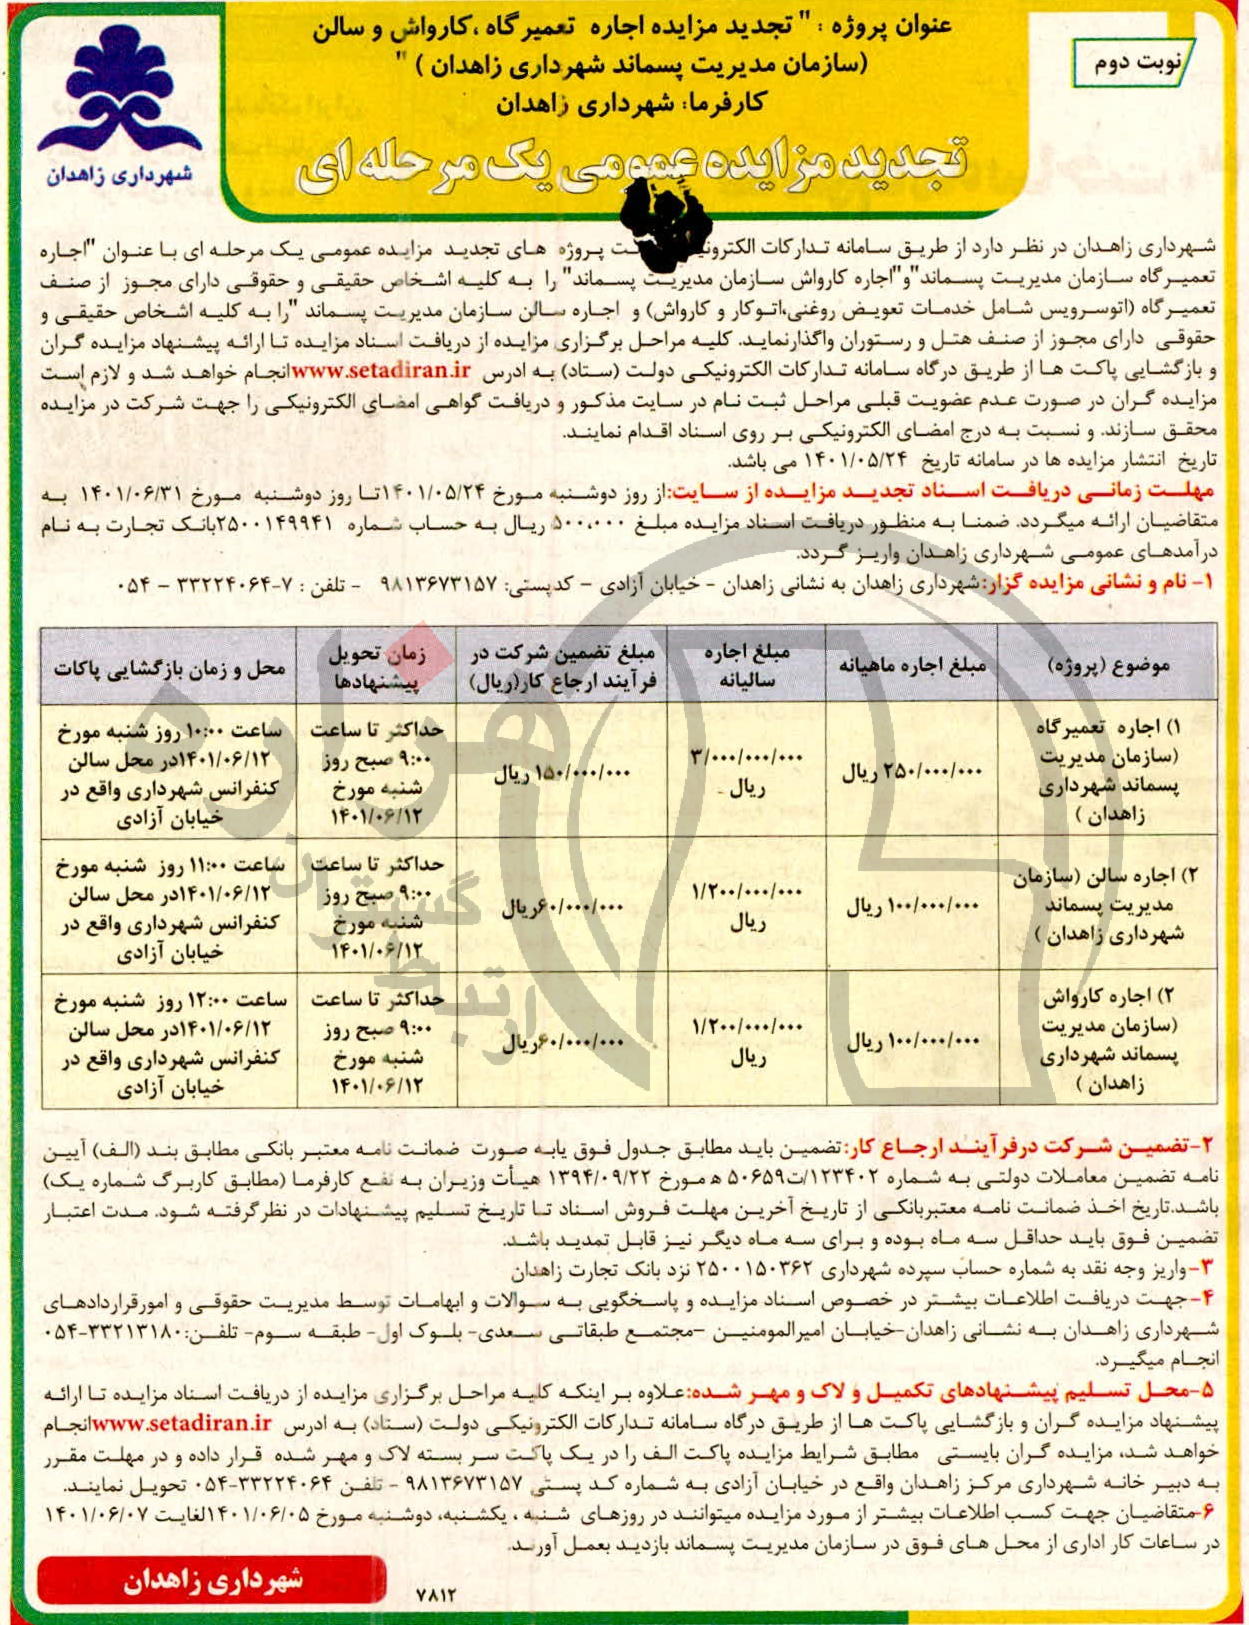 نوبت دوم
عنوان پروژه : " تجدید مزایده اجاره تعمیر گاه ،کارواش و سالن
(سازمان مدیریت پسماند شهرداری زاهدان ) "
کارفرما: شهرداری زاهدان
تجدید مزایده عمومی یک مرحله ای
شهرداری زاهدان
شهرداری زاهدان در نظر دارد از طریق سامانه تدارکات الکترونیک ت پروژه های تجدید مزایده عمومی یک مرحله ای با عنوان "اجاره
تعمیرگاه سازمان مدیریت پسماند"و"اجاره کارواش سازمان مدیریت پسماند" را به کلیه اشخاص حقیقی و حقوقی دارای مجوز از صنف
تعمیرگاه (اتوسرویس شامل خدمات تعویض روغنی،اتوکار و کارواش) و اجاره سالن سازمان مدیریت پسماند "را به کلیه اشخاص حقیقی و
حقوقی دارای مجوز از صنف هتل و رستوران واگذارنماید. کلیه مراحل برگزاری مزایده از دریافت اسناد مزایده تا ارائه پیشنهاد مزایده گران
و بازگشایی پاکت ها از طریق درگاه سامانه تدارکات الکترونیکی دولت (ستاد) به ادرس www.setadiran.irانجام خواهد شد و لازم است
مزایده گران در صورت عدم عضویت قبلی مراحل ثبت نام در سایت مذکور و دریافت گواهی امضای الکترونیکی را جهت شرکت در مزایده
محقق سازند. و نسبت به درج امضای الکترونیکی بر روی اسناد اقدام نمایند.
تاریخ انتشار مزایده ها در سامانه تاریخ ۱۴۰۱/۰۵/۲۴ می باشد.
مهلت زمانی دریافت اسناد تجدید مزایده از سایت:از روز دوشنبه مورخ ۱۴۰۱/۰۵/۲۴تا روز دوشنبه مورخ ۱۴۰۱/۰۶/۳۱ به
متقاضیان ارائه میگردد. ضمنا به منظور دریافت اسناد مزایده مبلغ ۵۰۰،۰۰۰ ریال به حساب شماره ۲۵۰۰۱۴۹۹۴۱بانک تجارت به نام
درآمدهای عمومی شهرداری زاهدان واریز گردد.
۱- نام و نشانی مزایده گزار:شهرداری زاهدان به نشانی زاهدان - خیابان آزادی - کدپستی: ۹۸۱۳۶۷۳۱۵۷ - تلفن : ۷-۳۳۲۲۴۰۶۴ - ۰۵۴
موضوع (پروژه) مبلغ اجاره ماهیانه مبلغ اجاره سالیانه مبلغ تضمین شرکت در فرآیند ارجاع کار(ریال) زمان تحویل پیشنهادها محل و زمان بازگشایی پاکات
۱) اجاره تعمیرگاه (سازمان مدیریت پسماند شهرداری زاهدان ) ۲۵۰/۰۰۰/۰۰۰ ریال ۳/۰۰۰/۰۰۰/۰۰۰ ریال ۱۵۰/۰۰۰/۰۰۰ ریال حداکثر تا ساعت ۹:۰۰ صبح روز شنبه مورخ ۱۴۰۱/۰۶/۱۲ ساعت ۱۰:۰۰ روز شنبه مورخ ۱۴۰۱/۰۶/۱۲در محل سالن کنفرانس شهرداری واقع در خیابان آزادی
۲) اجاره سالن (سازمان مدیریت پسماند شهرداری زاهدان ) ۱۰۰/۰۰۰/۰۰۰ ریال ۱/۲۰۰/۰۰۰/۰۰۰ ریال ۶۰/۰۰۰/۰۰۰ریال حداکثر تا ساعت ۹:۰۰ صبح روز شنبه مورخ ۱۴۰۱/۰۶/۱۲ ساعت ۱۱:۰۰ روز شنبه مورخ ۱۴۰۱/۰۶/۱۲در محل سالن کنفرانس شهرداری واقع در خیابان آزادی
۲) اجاره کارواش (سازمان مدیریت پسماند شهرداری زاهدان ) ۱۰۰/۰۰۰/۰۰۰ ریال ۱/۲۰۰/۰۰۰/۰۰۰ ریال ۶۰/۰۰۰/۰۰۰ریال حداکثر تا ساعت ۹:۰۰ صبح روز شنبه مورخ ۱۴۰۱/۰۶/۱۲ ساعت ۱۲:۰۰ روز شنبه مورخ ۱۴۰۱/۰۶/۱۲در محل سالن کنفرانس شهرداری واقع در خیابان آزادی
۲-تضمین شرکت درفرآیند ارجاع کار:تضمین باید مطابق جدول فوق یابه صورت ضمانت نامه معتبر بانکی مطابق بند (الف) آیین
نامه تضمین معاملات دولتی به شماره ۱۲۳۴۰۲/ت۵۰۶۵۹ ه مورخ ۱۳۹۴/۰۹/۲۲ هیأت وزیران به نفع کارفرما (مطابق کاربرگ شماره یک)
باشد.تاریخ اخذ ضمانت نامه معتبربانکی از تاریخ آخرین مهلت فروش اسناد تا تاریخ تسلیم پیشنهادات در نظرگرفته شود. مدت اعتبار
تضمین فوق باید حداقل سه ماه بوده و برای سه ماه دیگر نیز قابل تمدید باشد.
۳-واریز وجه نقد به شماره حساب سپرده شهرداری ۲۵۰۰۱۵۰۳۶۲ نزد بانک تجارت زاهدان
۴-جهت دریافت اطلاعات بیشتر در خصوص اسناد مزایده و پاسخگویی به سوالات و ابهامات توسط مدیریت حقوقی و امورقراردادهای
شهرداری زاهدان به نشانی زاهدان-خیابان امیرالمومنین -مجتمع طبقاتی سعدی- بلوک اول- طبقه سوم- تلفن:۳۳۲۱۳۱۸۰-۰۵۴
انجام میگیرد.
۵-محل تسلیم پیشنهادهای تکمیل و لاک و مهر شده:علاوه بر اینکه کلیه مراحل برگزاری مزایده از دریافت اسناد مزایده تا ارائه
پیشنهاد مزایده گران و بازگشایی پاکت ها از طریق درگاه سامانه تدارکات الکترونیکی دولت (ستاد) به ادرس www.setadiran.irانجام
خواهد شد، مزایده گران بایستی مطابق شرایط مزایده پاکت الف را در یک پاکت سر بسته لاک و مهر شده قرار داده و در مهلت مقرر
به دبیر خانه شهرداری مرکز زاهدان واقع در خیابان آزادی به شماره کد پستی ۹۸۱۳۶۷۳۱۵۷ - تلفن ۳۳۲۲۴۰۶۴-۰۵۴ تحویل نمایند.
۶-متقاضیان جهت کسب اطلاعات بیشتر از مورد مزایده میتوانند در روزهای شنبه ، یکشنبه، دوشنبه مورخ ۱۴۰۱/۰۶/۰۵لغایت ۱۴۰۱/۰۶/۰۷
در ساعات کار اداری از محل های فوق در سازمان مدیریت پسماند بازدید بعمل آورند.
۷۸۱۲
شهرداری زاهدان